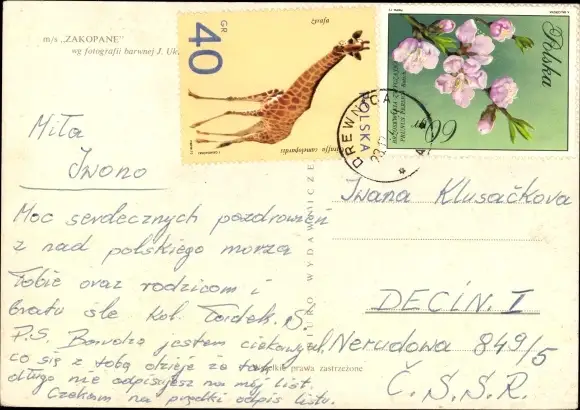 m/s „ZAKOPANE”
wg fotografii barwnej J. Uk
GR 40
żyrafa
Giraffa camelopardis
POLSKA
Polska
60 gr
DREWNICA
Miła
Iwono
Moc serdecznych pozdrowień
z nad polskiego morza
Tobie oraz rodzicom i
bratu śle kol. Tadek. S.
P.S. Bardzo jestem ciekawy
co się z tobą dzieje że tak
długo nie odpisujesz na mój list.
Czekam na prędki odpis listu.
WYDAWNICZE
wszelkie prawa zastrzeżone
Iwana Klusačkova
DECÍN. I
Nerudowa 849/5
Č. S. S. R.